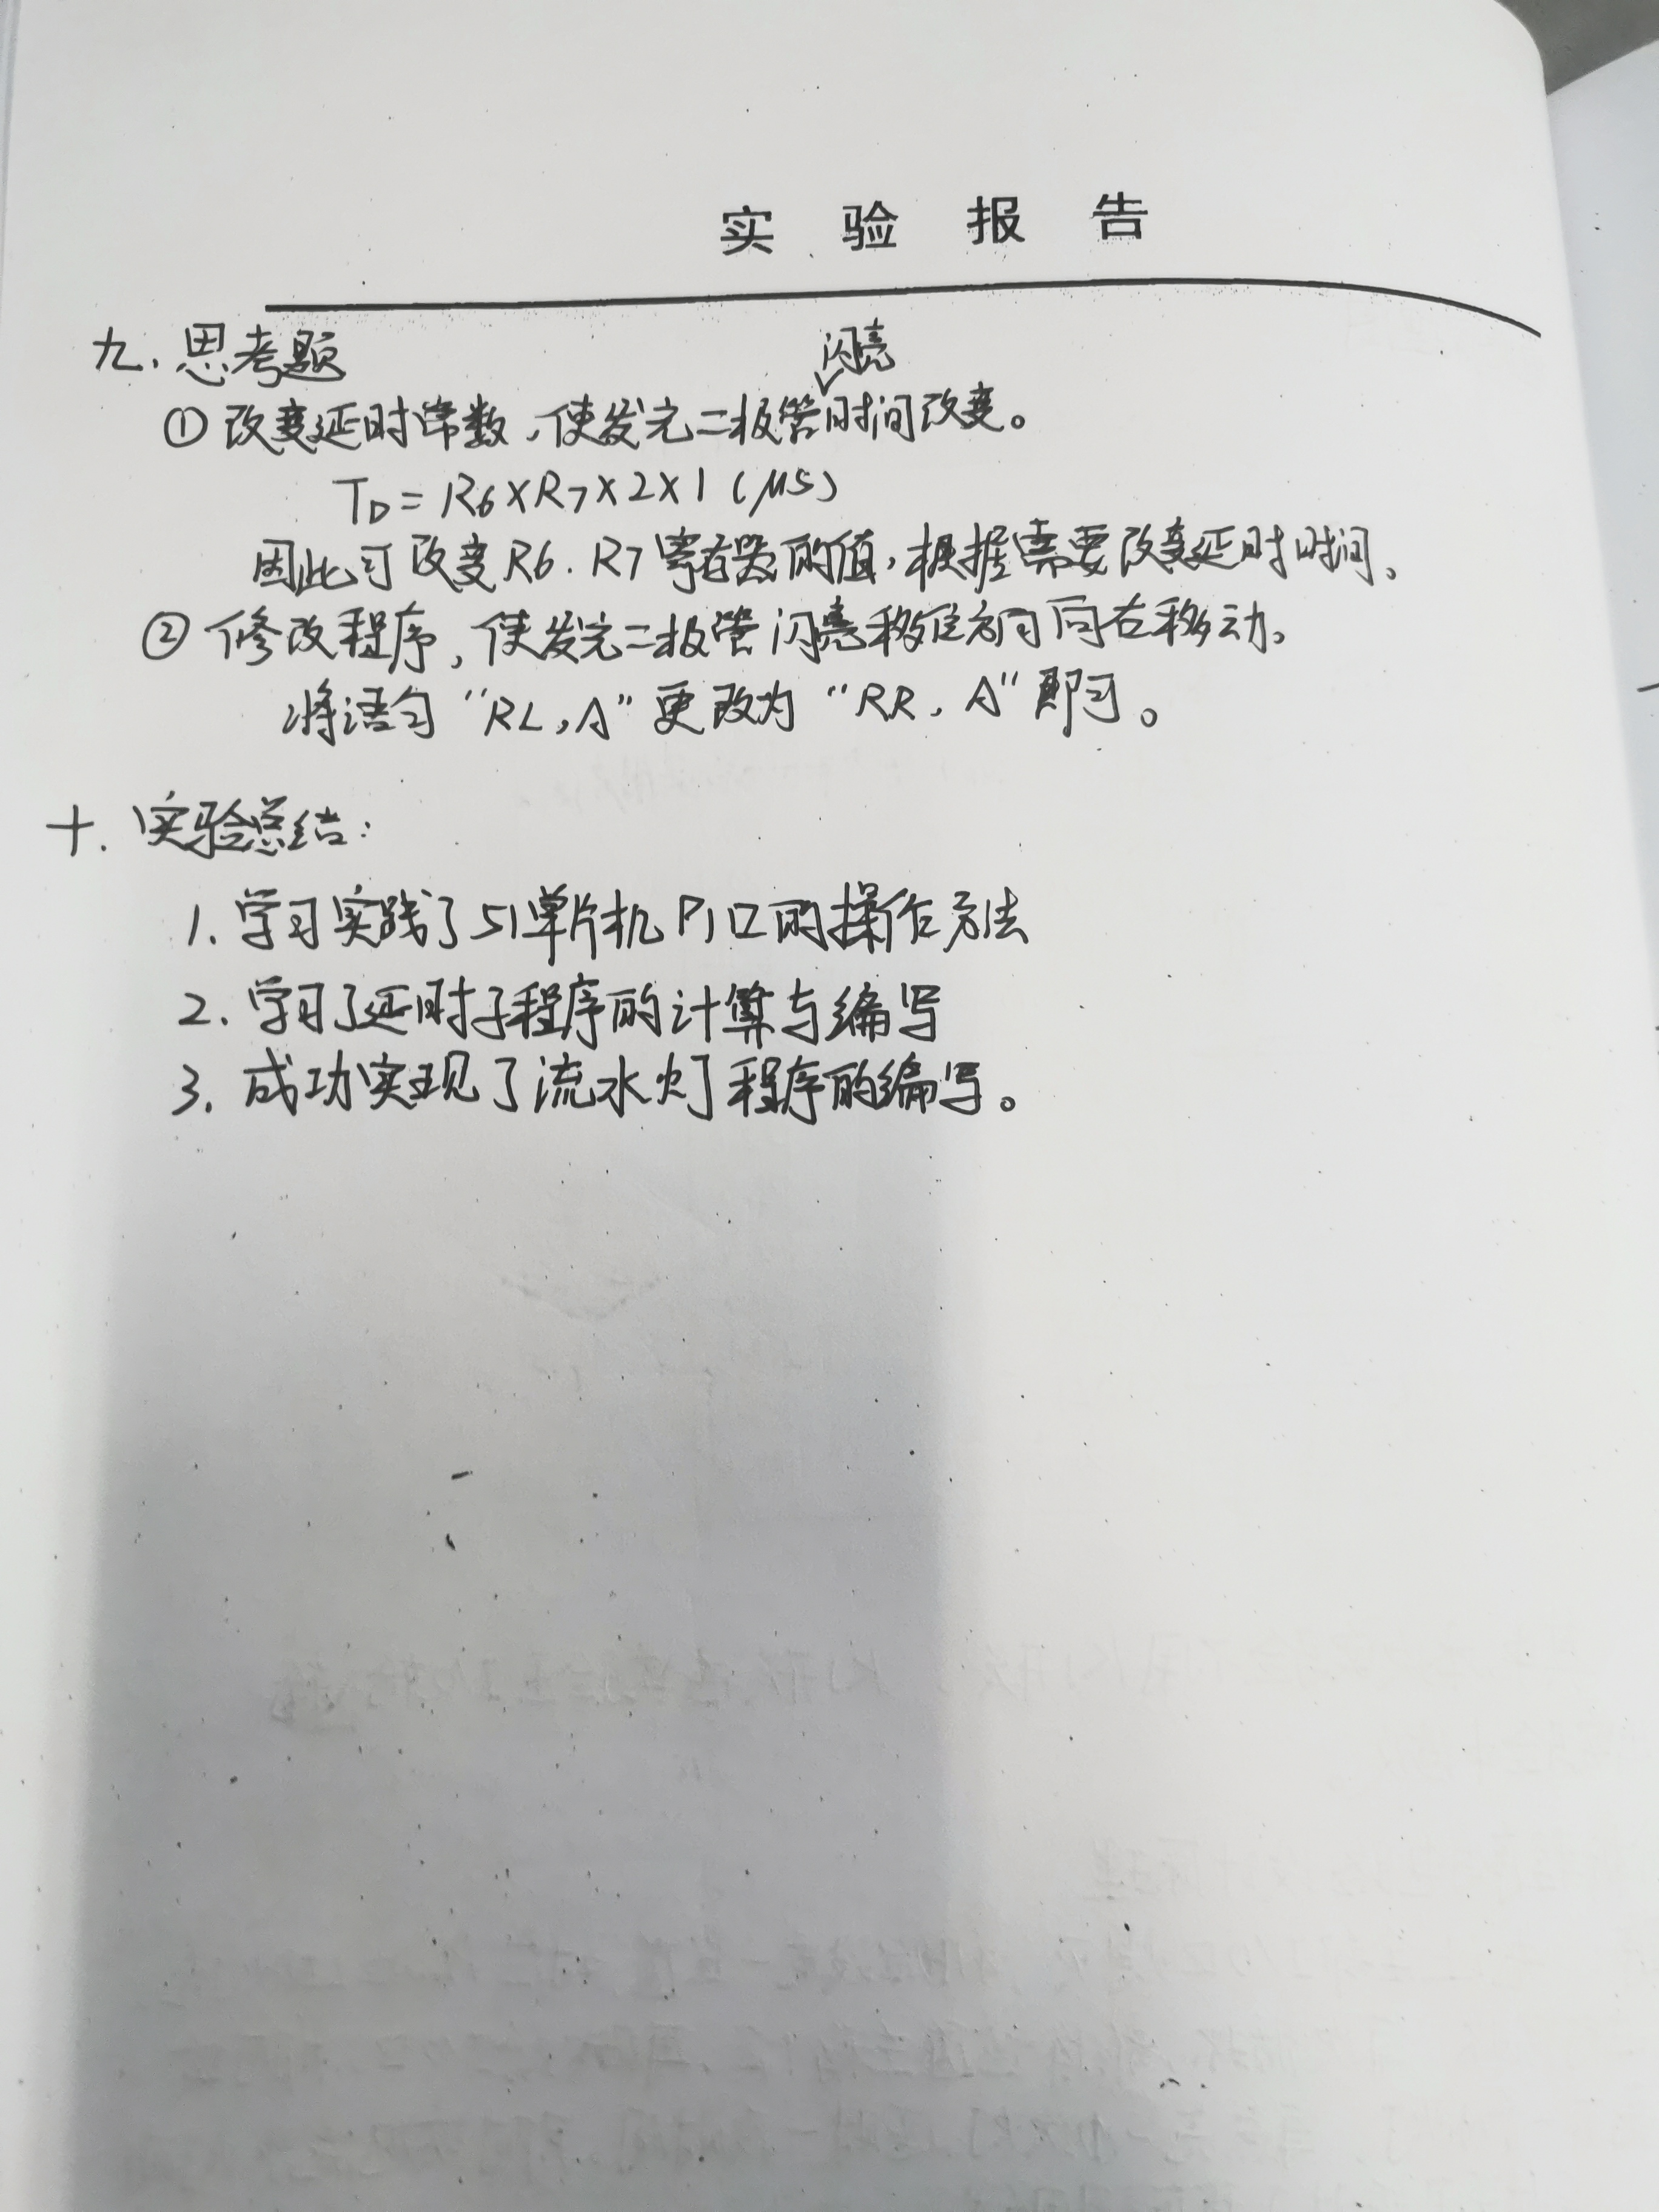 实验报告
九、思考题
① 改变延时常数,使发光二极管闪亮时间改变。
T_D = R6×R7×2×1(μs)
因此可改变R6、R7寄存器的值,根据需要改变延时时间。
② 修改程序,使发光二极管闪亮移位方向向右移动。
将语句“RL,A”更改为“RR,A”即可。
十、实验总结:
1. 学习实践了51单片机P1口的操作方法
2. 学习了延时子程序的计算与编写
3. 成功实现了流水灯程序的编写。